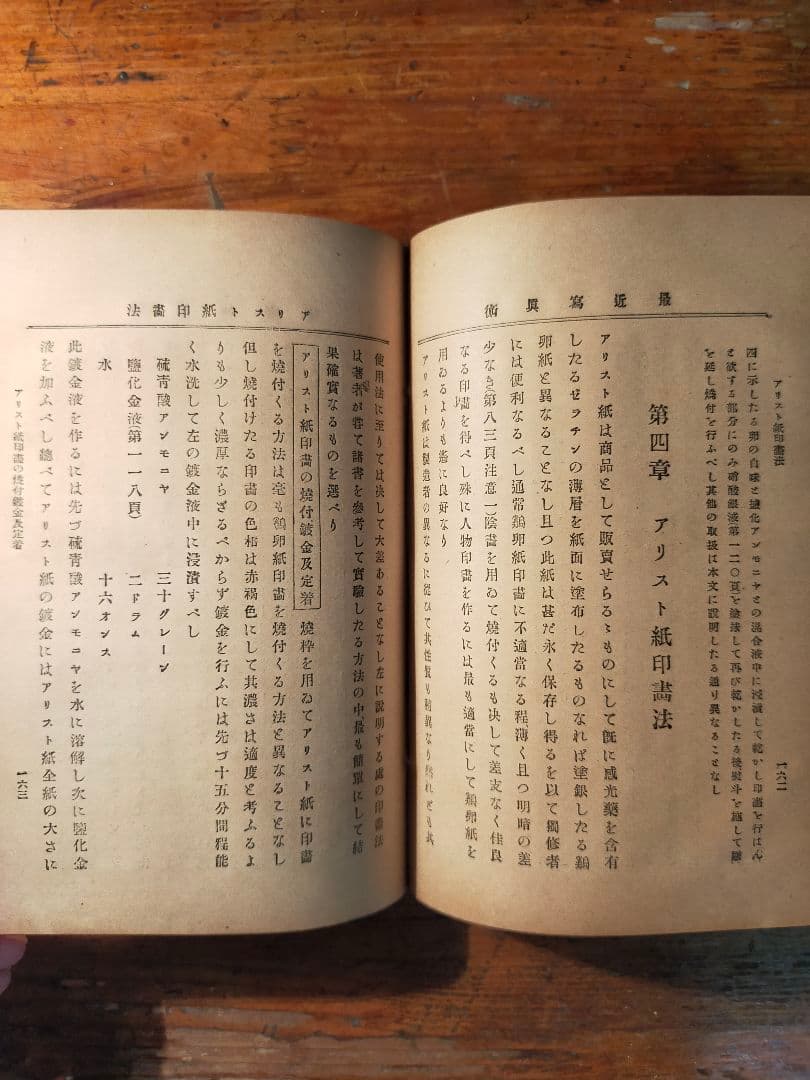 最近寫眞術
アリスト紙印畫法
一六二
四に示したる卵の白味と鹽化アンモニヤとの混合液中に浸漬して乾かし印畫を行はん
と欲する部分にのみ硝酸銀液第一二〇頁を塗法して再び乾かしたる後熨斗を施して皺
を延し燒付を行ふべし其他の取扱は本文に說明したる通り異なることなし
第四章 アリスト紙印畫法
アリスト紙は商品として販賣せらるゝものにして旣に感光藥を含有
したるゼラチンの薄層を紙面に塗布したるものなれば塗銀したる鷄
卵紙と異なることなし且つ此紙は甚だ永く保存し得るを以て獨修者
には便利なるべし通常鷄卵紙印畫に不適當なる程薄く且つ明暗の差
少なき第八三頁注意一)陰畫を用ゐて燒付くるも決して差支なく佳良
なる印畫を得べし殊に人物印畫を作るには最も適當にして鷄卵紙を
用ゐるよりも遙に良好なり
アリスト紙は製造者の異なるに從ひて其性質も稍異なり然れども其
アリスト紙印畫法
使用法に至りては決して大差あることなし左に說明する處の印畫法
は著者が甞て諸書を參考して實驗したる方法の中、最も簡單にして結
果確實なるものを選べり
アリスト紙印畫の燒付鍍金及定着 燒枠を用ゐてアリスト紙に印畫
を燒付くる方法は毫も鷄卵紙印畫を燒付くる方法と異なることなし
但し燒付けたる印畫の色相は赤褐色にして其濃さは適度と考ふるよ
りも少しく濃厚ならざるべからず鍍金を行ふには先づ十五分間程能
く水洗して左の鍍金液中に浸漬すべし
硫靑酸アンモニヤ 三十グレーン
鹽化金液(第一一八頁) 二ドラム
水 十六オンス
此鍍金液を作るには先づ硫靑酸アンモニヤを水に溶解し次に鹽化金
液を加ふべし總べてアリスト紙の鍍金にはアリスト紙全紙の大さに
アリスト紙印畫の燒付鍍金及定着
一六三